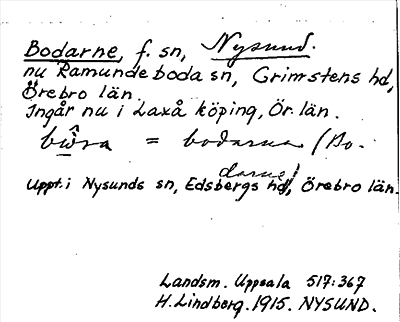 Bodarne, f. sn, Nysund.
nu Ramundeboda sn, Grimstens hd,
Örebro län.
Ingår nu i Laxå köping, Ör. län.
bw̑ra = bodarna (Bo-
darne)
Uppt. i Nysunds sn, Edsbergs hd, Örebro län.
Landsm. Uppsala 517:367
H. Lindberg. 1915. NYSUND.